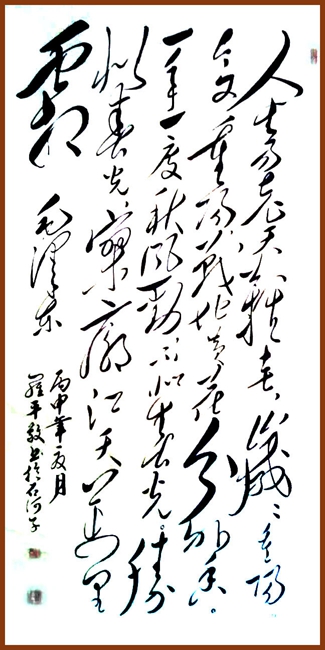 人生易老天难老，岁々重阳
今又重阳，战地黄花分外香。
一年一度秋风劲，不似春光。胜
似春光，寥廓江天万里
霜 毛泽东
丙申年夏月
羅平书於石河子